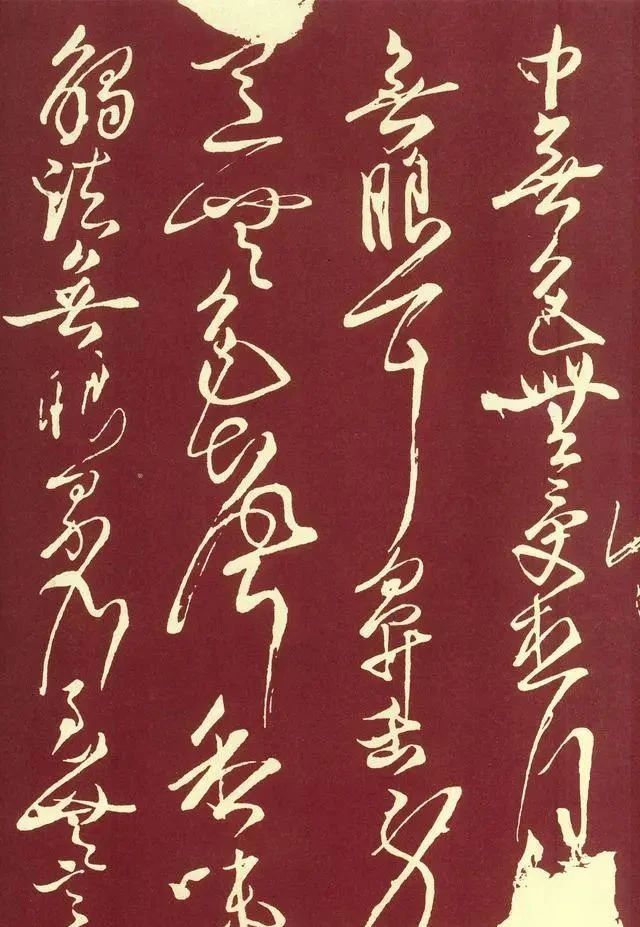 中無色無受想行
無眼耳鼻舌身
意無色聲香味
觸法無眼界乃至無意